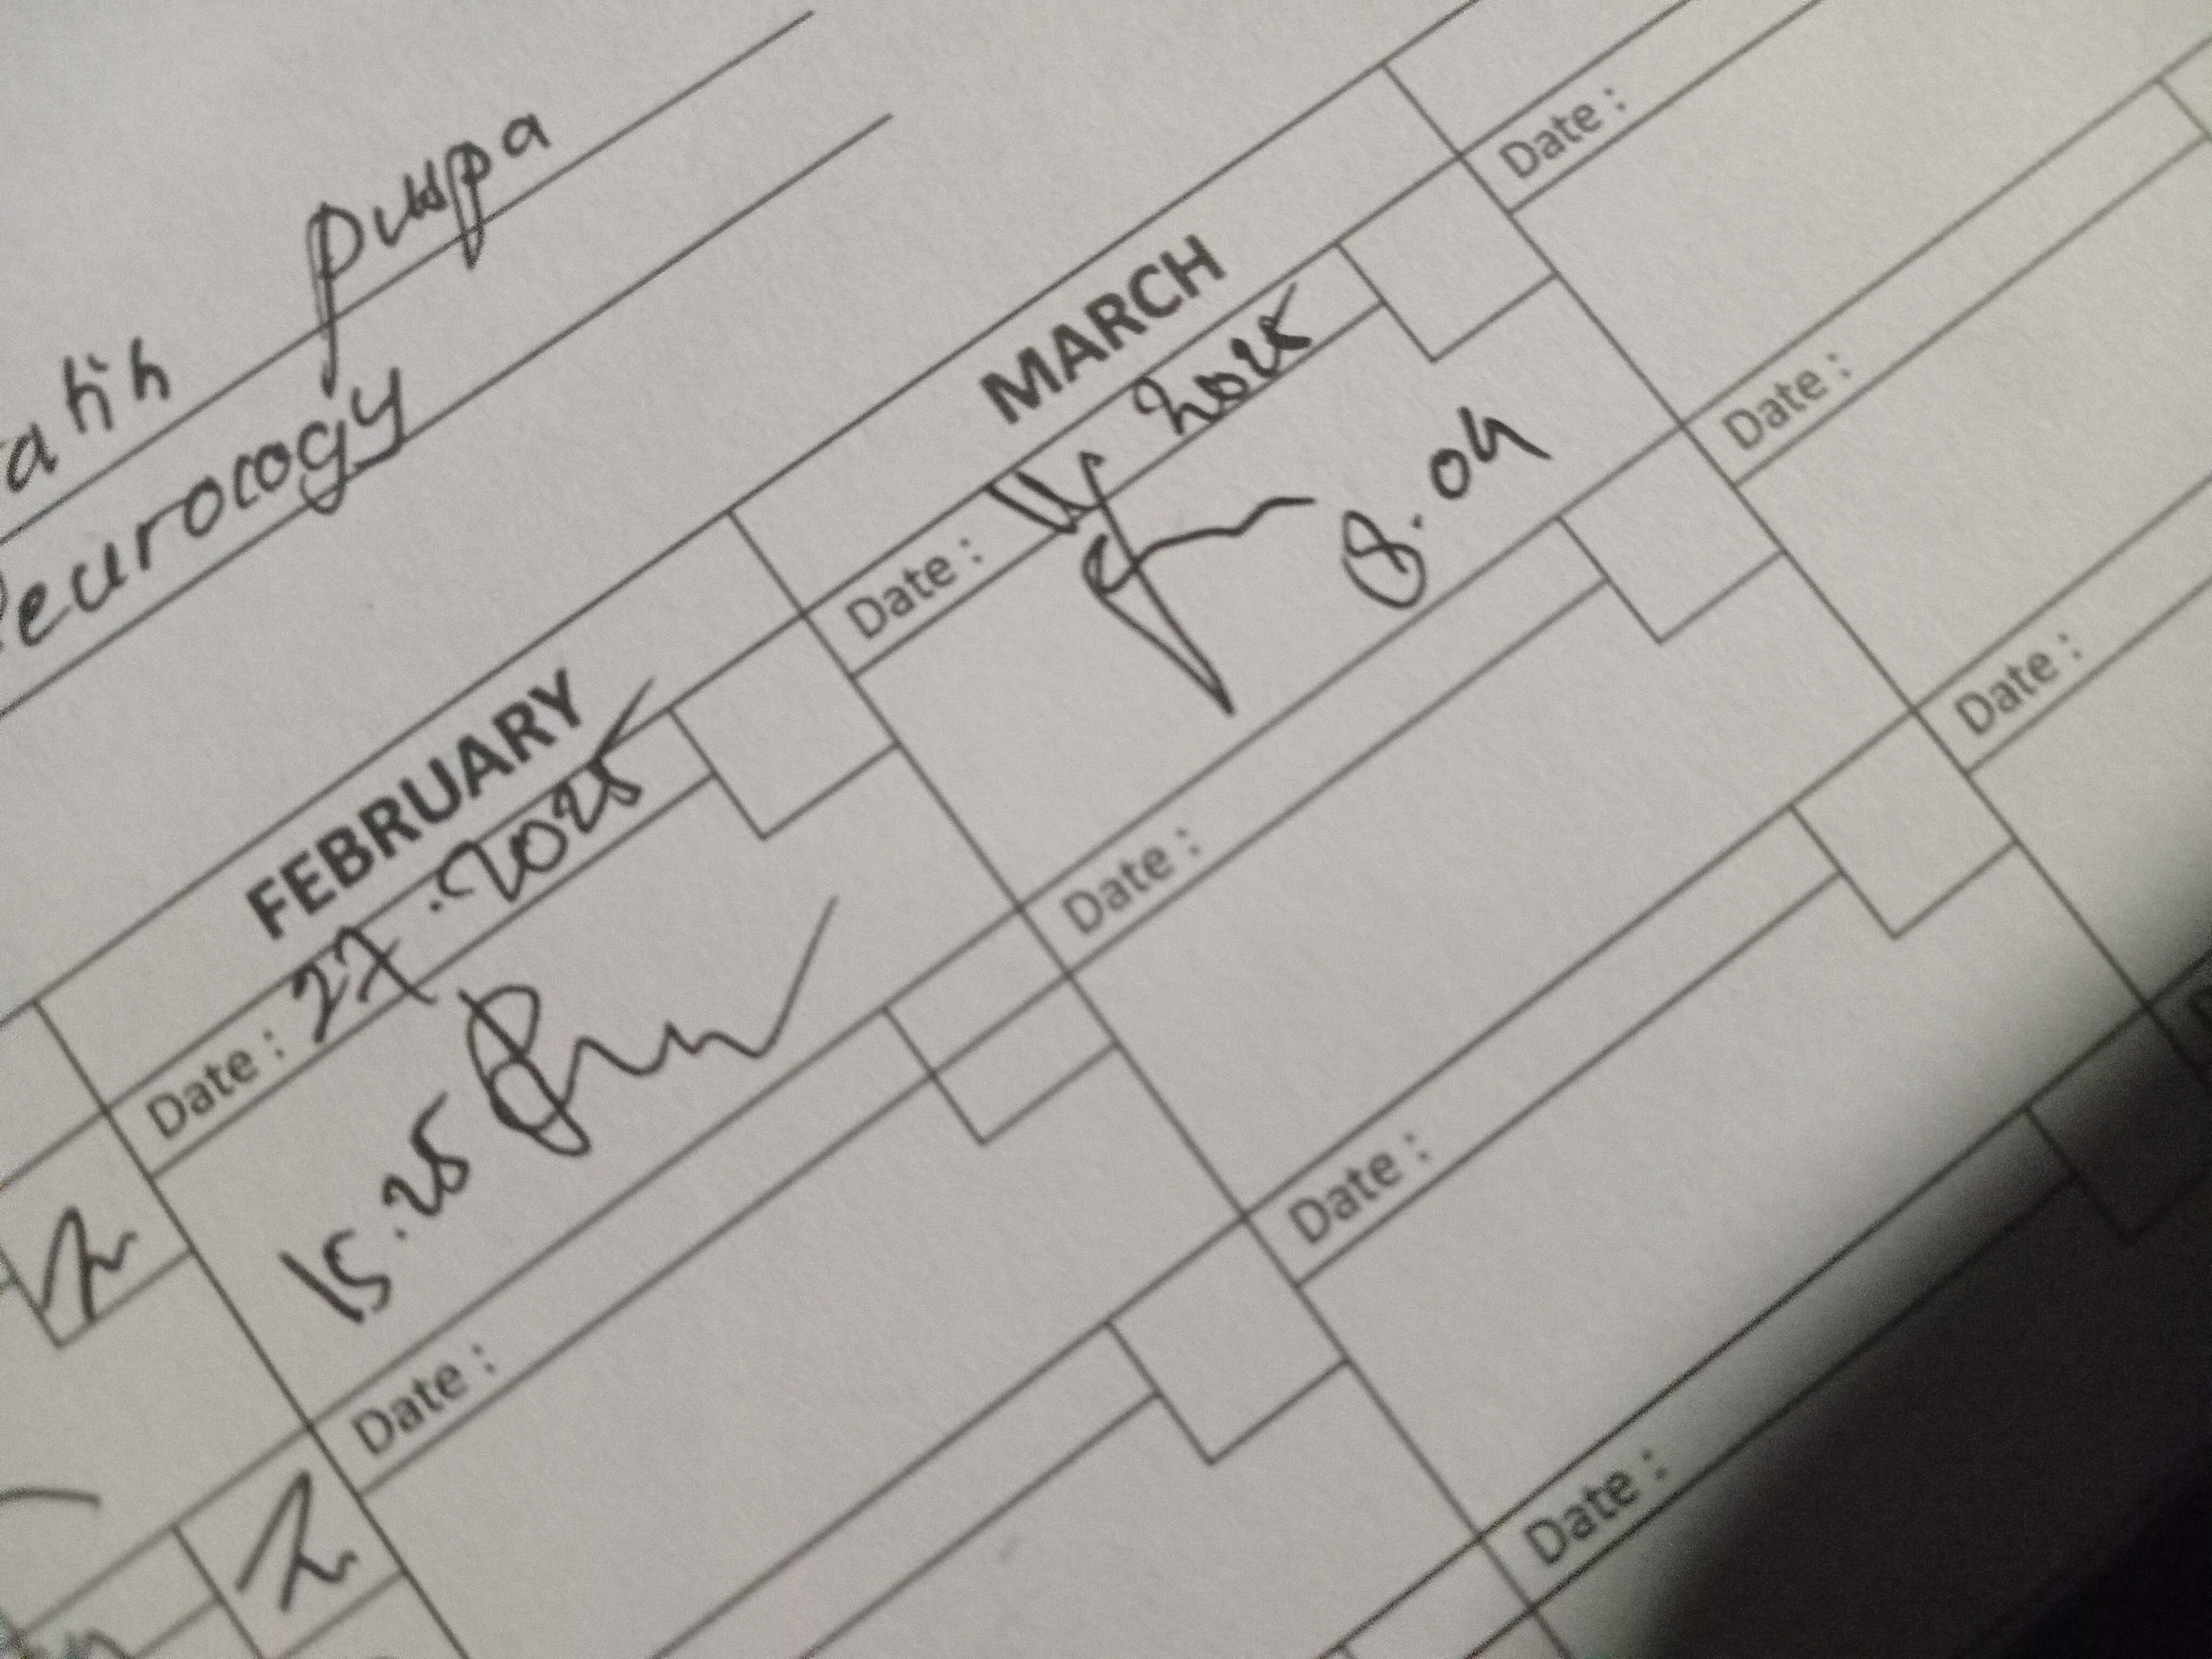 puspa
FEBRUARY MARCH
Date : 27 . 2025 Date : 2025 Date :
15.25 8.04
Date : Date : Date :
Date : Date :
Date :